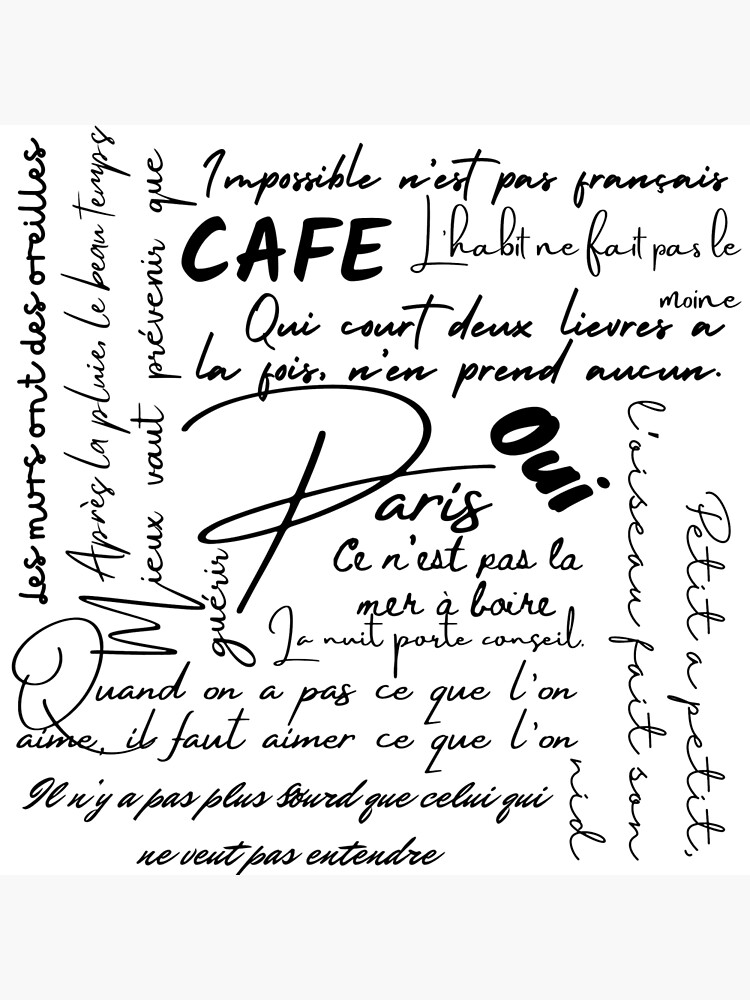 Les murs ont des oreilles
Après la pluie, le beau temps
Mieux vaut prévenir que
guérir
Impossible n'est pas français
CAFE
L'habit ne fait pas le
moine
Qui court deux lievres a
la fois, n'en prend aucun.
Paris
Oui
Ce n'est pas la
mer à boire
La nuit porte conseil.
Quand on a pas ce que l'on
aime, il faut aimer ce que l'on
Il n'y a pas plus sourd que celui qui
ne veut pas entendre
Petit a petit,
l'oiseau fait son
nid